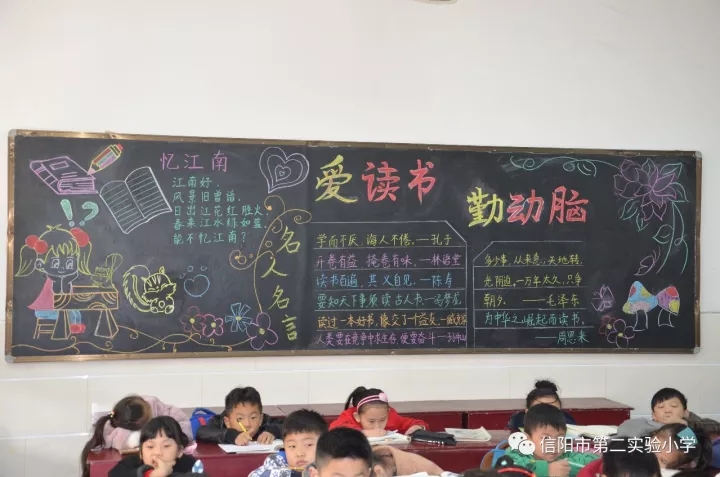 忆江南
江南好,
风景旧曾谙。
日出江花红胜火,
春来江水绿如蓝。
能不忆江南?
!?
名人名言
爱读书
勤动脑
学而不厌 诲人不倦。——孔子
开卷有益 掩卷有味。——林语堂
读书百遍,其义自见。——陈寿
要知天下事须读古人书
读过一本好书,像交了个益友
人类要在竞争中求生存,便要奋斗
多少事,从来急,天地转,
光阴迫。一万年太久,只争
朝夕。——毛泽东
为中华之崛起而读书。
——周恩来
信阳市第二实验小学